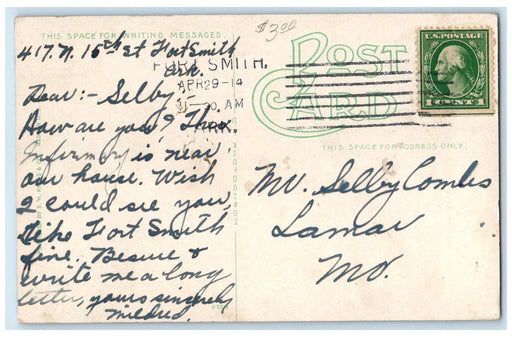 THIS SPACE FOR WRITING MESSAGES
$3.00
417. N. 15th St Fort Smith
Ark.
Dear:- Selby:-
How are you? The
Infirmary is near
our house. Wish
I could see you,
like Fort Smith
fine. Besure &
write me a long
letter, yours sincerely
Mildred.
FORT SMITH,
APR 29-14
11-30 AM
ARK.
POST
CARD
U.S. POSTAGE
1 CENT 1
THIS SPACE FOR ADDRESS ONLY.
Mr. Selby Combs
Lamar
Mo.